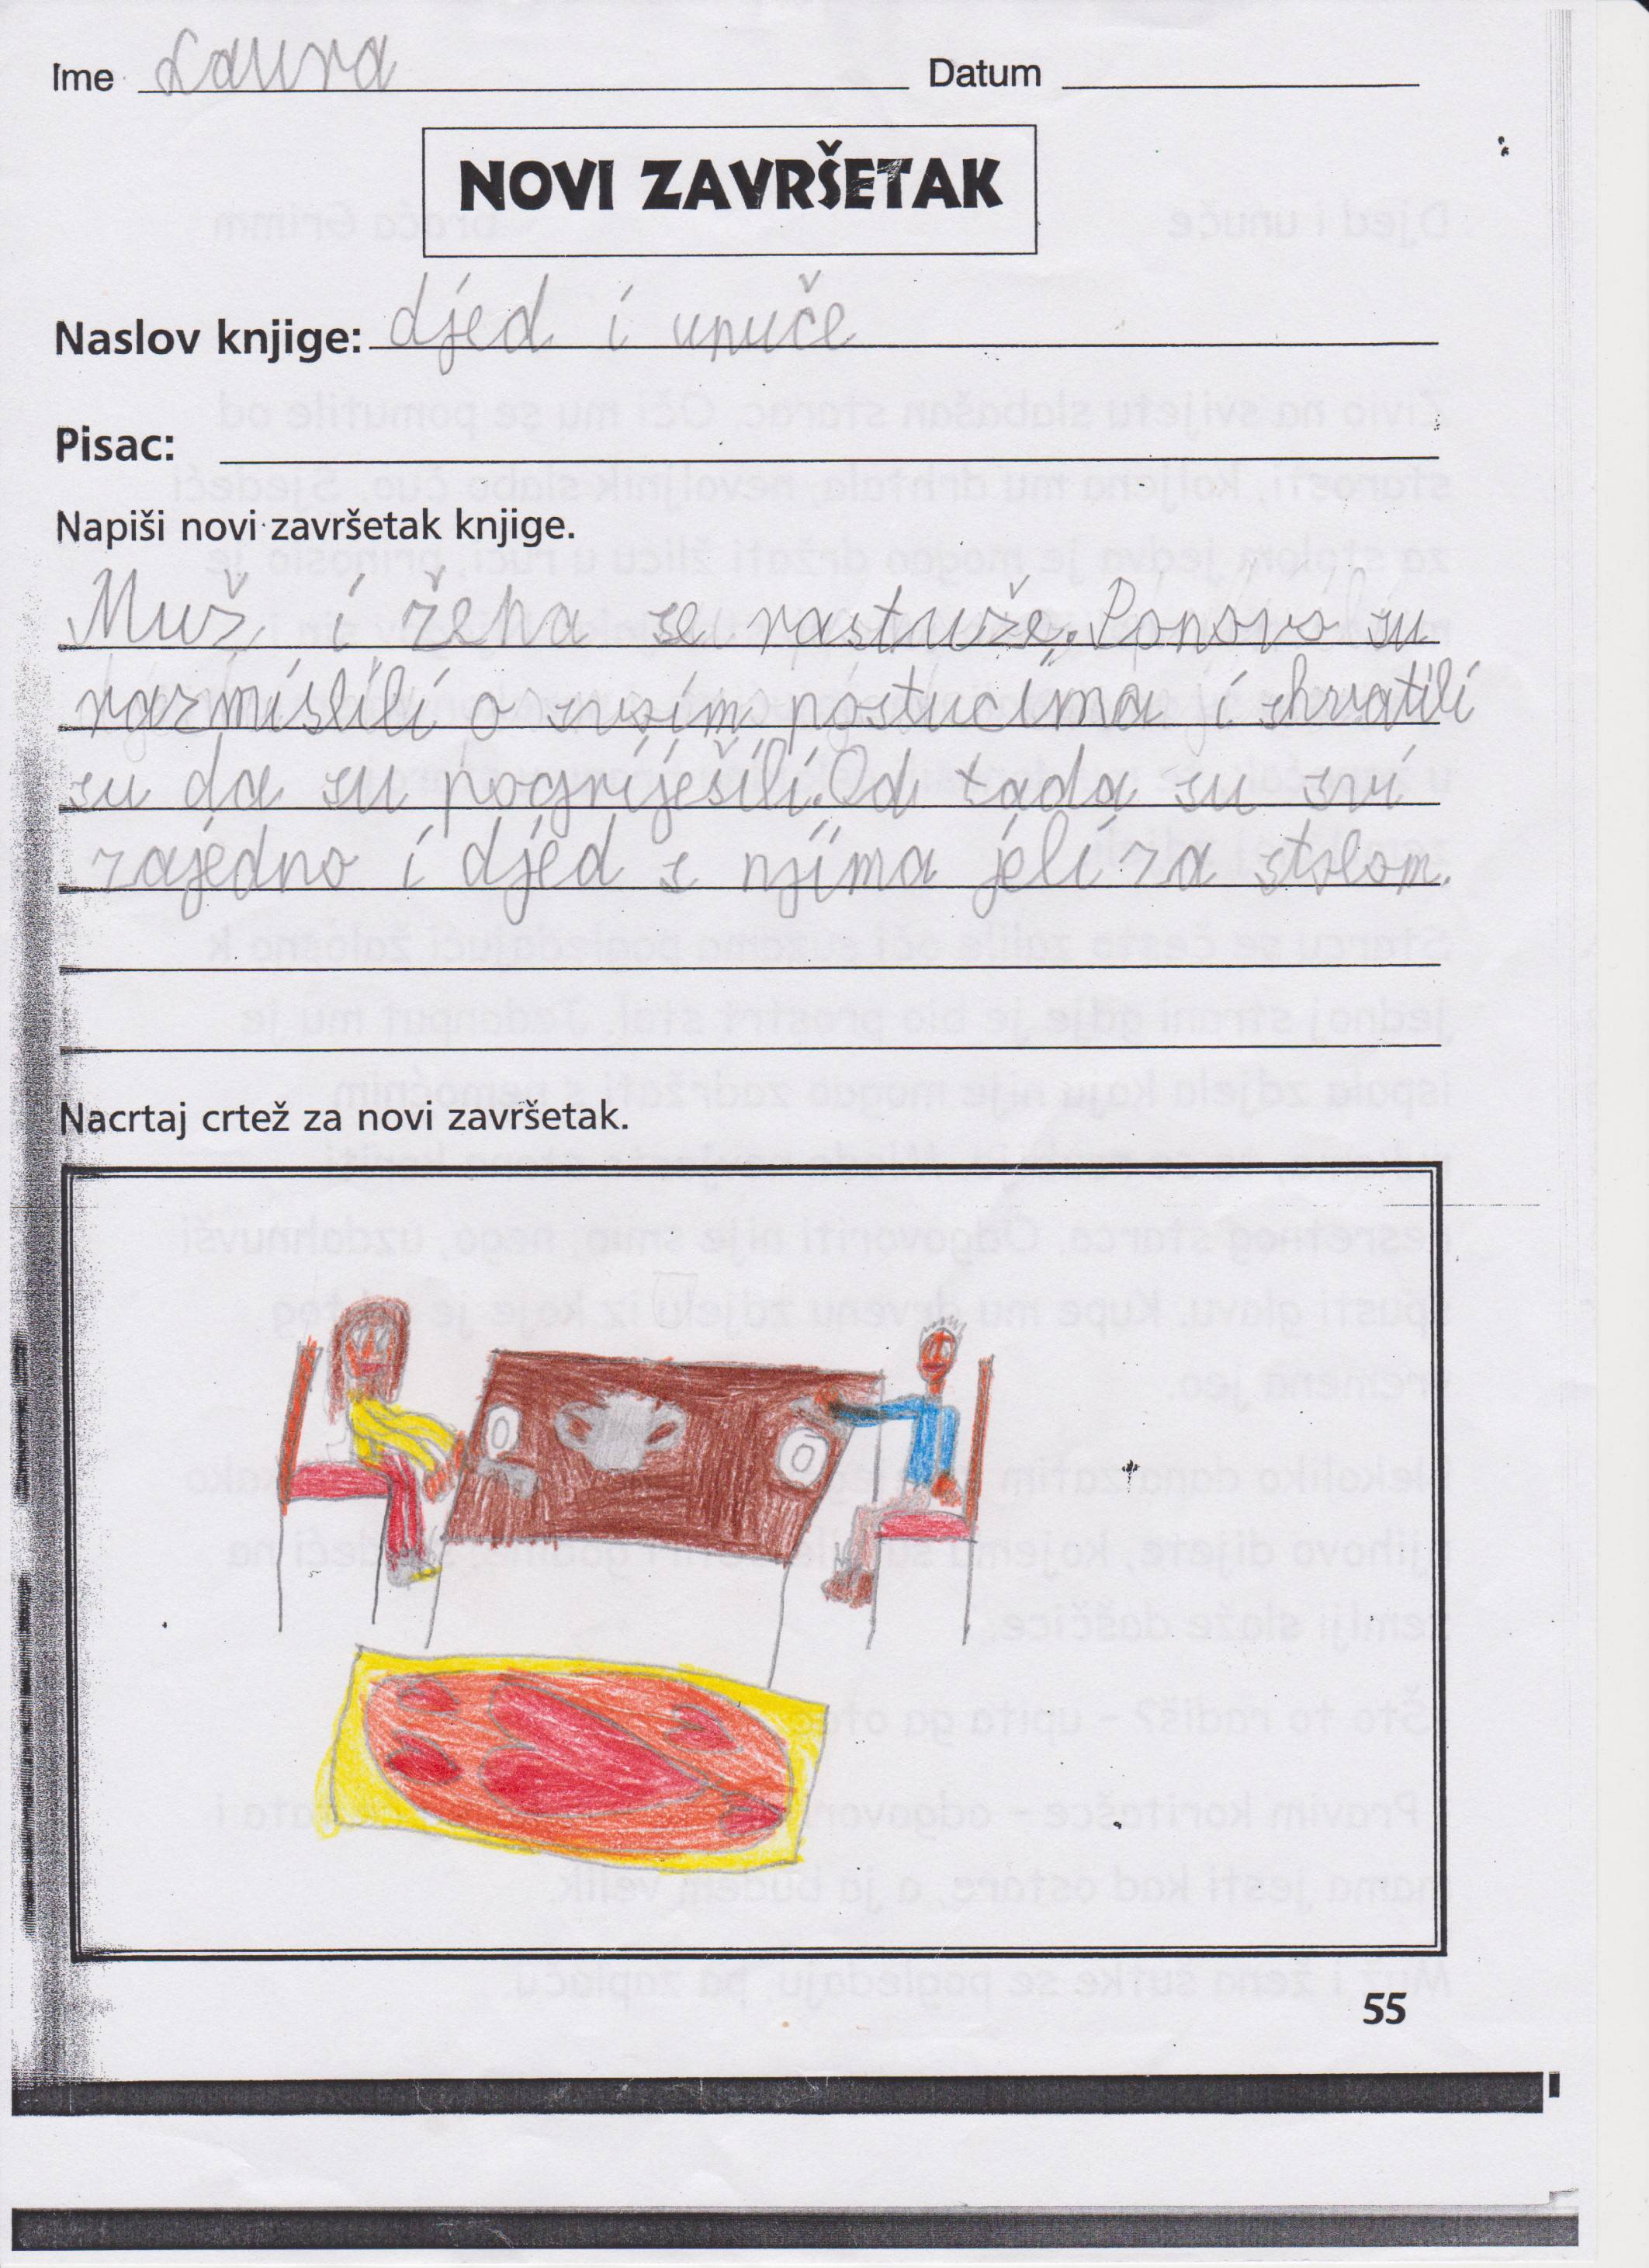 Ime Laura Datum
NOVI ZAVRŠETAK
Naslov knjige: djed i unuče
Pisac:
Napiši novi završetak knjige.
Muž i žena se rastuže. Ponovo su
razmislili o svoim postucima i shvatili
su da su pogriješili. Od tada su svi
zajedno i djed s njima jeli za stolom.
Nacrtaj crtež za novi završetak.
55